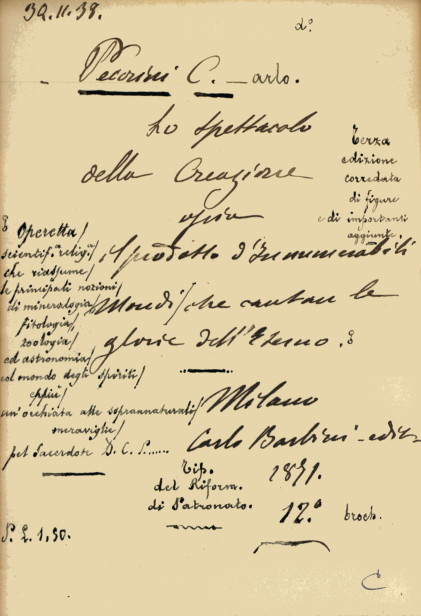 39.11.38.
d.o
Pecorini C. _ arlo.
Lo spettacolo
della Creazione
ossia
il prodotto d'Innumerabili
Mondi/che cantan le
glorie dell'Eterno.
Terza
edizione
corredata
di figure
e di importanti
aggiunte.
Operetta/
scientif.o religi.a/
che riassume/
le principali nozioni/
di mineralogia/
fitologia/
zoologia/
ed astronomia/
col mondo degli spiriti/
eppiù/
un'occhiata alle soprannaturali/
meraviglie/
pel Sacerdote D. C. P......
Milano
Carlo Barbini - edit.
Tip.
del Riform.
di Patronato.
1871.
12.o broch.
P. L. 1,50.
C